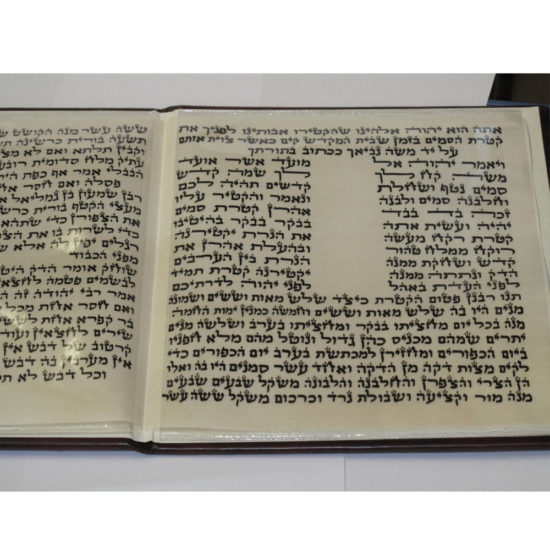 אתה הוא יהוה אלהינו שהקטירו אבותינו לפניך את
קטרת סמים בזמן שבית המקדש קים כאשר צוית אותם
על יד משה נביאך ככתוב בתורתך
ויאמר יהוה אל
משה קח לך
סמים נטף ושחלת
וחלבנה סמים ולבנה
זכה בד בבד
יהיה ועשית אתה
קטרת רקח מעשה
רוקח ממלח טהור
קדש ושחקת ממנה
הדק ונתתה ממנה
לפני העדת באהל
מועד אשר אועד
לך שמה קדש
קדשים תהיה לכם
ונאמר והקטיר עליו
אהרן קטרת סמים
בבקר בבקר בהיטיבו
את הנרת יקטירנה
ובהעלת אהרן את
הנרת בין הערבים
יקטירנה קטרת תמיד
לפני יהוה לדרתיכם
תנו רבנן פטום הקטרת כיצד שלש מאות וששים ושמונה
מנים היו בה שלש מאות וששים וחמשה כמנין ימות החמה
מנה בכל יום מחציתו בבקר ומחציתו בערב ושלשה מנים
יתרים שמהם מכניס כהן גדול ונוטל מהם מלא חפניו
ביום הכפורים ומחזירן למכתשת בערב יום הכפורים כדי
לקים מצות דקה מן הדקה ואחד עשר סמנים היו בה ואלו
הן הצרי והצפרן והחלבנה והלבונה משקל שבעים שבעים
מנה מור וקציעה ושבולת נרד וכרכום משקל ששה עשר
ששה עשר מנה הקושט
תשעה בורית כרשינה
וקבין תלתא ואם לא
עתיק מלח סדומית רובע
הבבלי אמר אף כפת
פסלה ואם חסר
רבן שמעון בן גמליאל
מעצי הקטף בורית
את הצפורן כדי שתהא
כדי לשרות בו את
רגלים יפין לה אלא
מפני הכבוד
שוחק אומר הדק
לבשמים פטמה לחצאין
אמר רבי יהודה זה
בר קפרא אחת
שירים לחצאין ועוד
קרטוב של דבש
אין מערבין בה דבש
וכל דבש לא